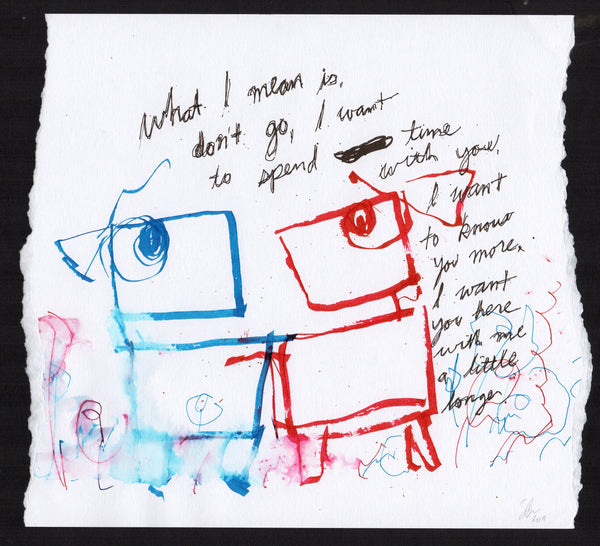 What I mean is,
don't go, I want
to spend time
with you.
I want
to know
you more.
I want
you here
with me
a little
longer.
2019